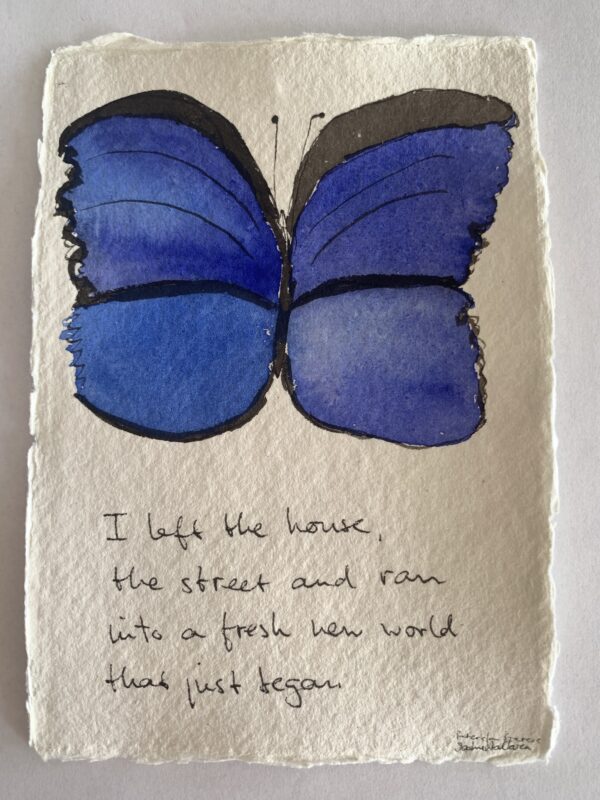 I left the house,
the street and ran
into a fresh new world
that just began.